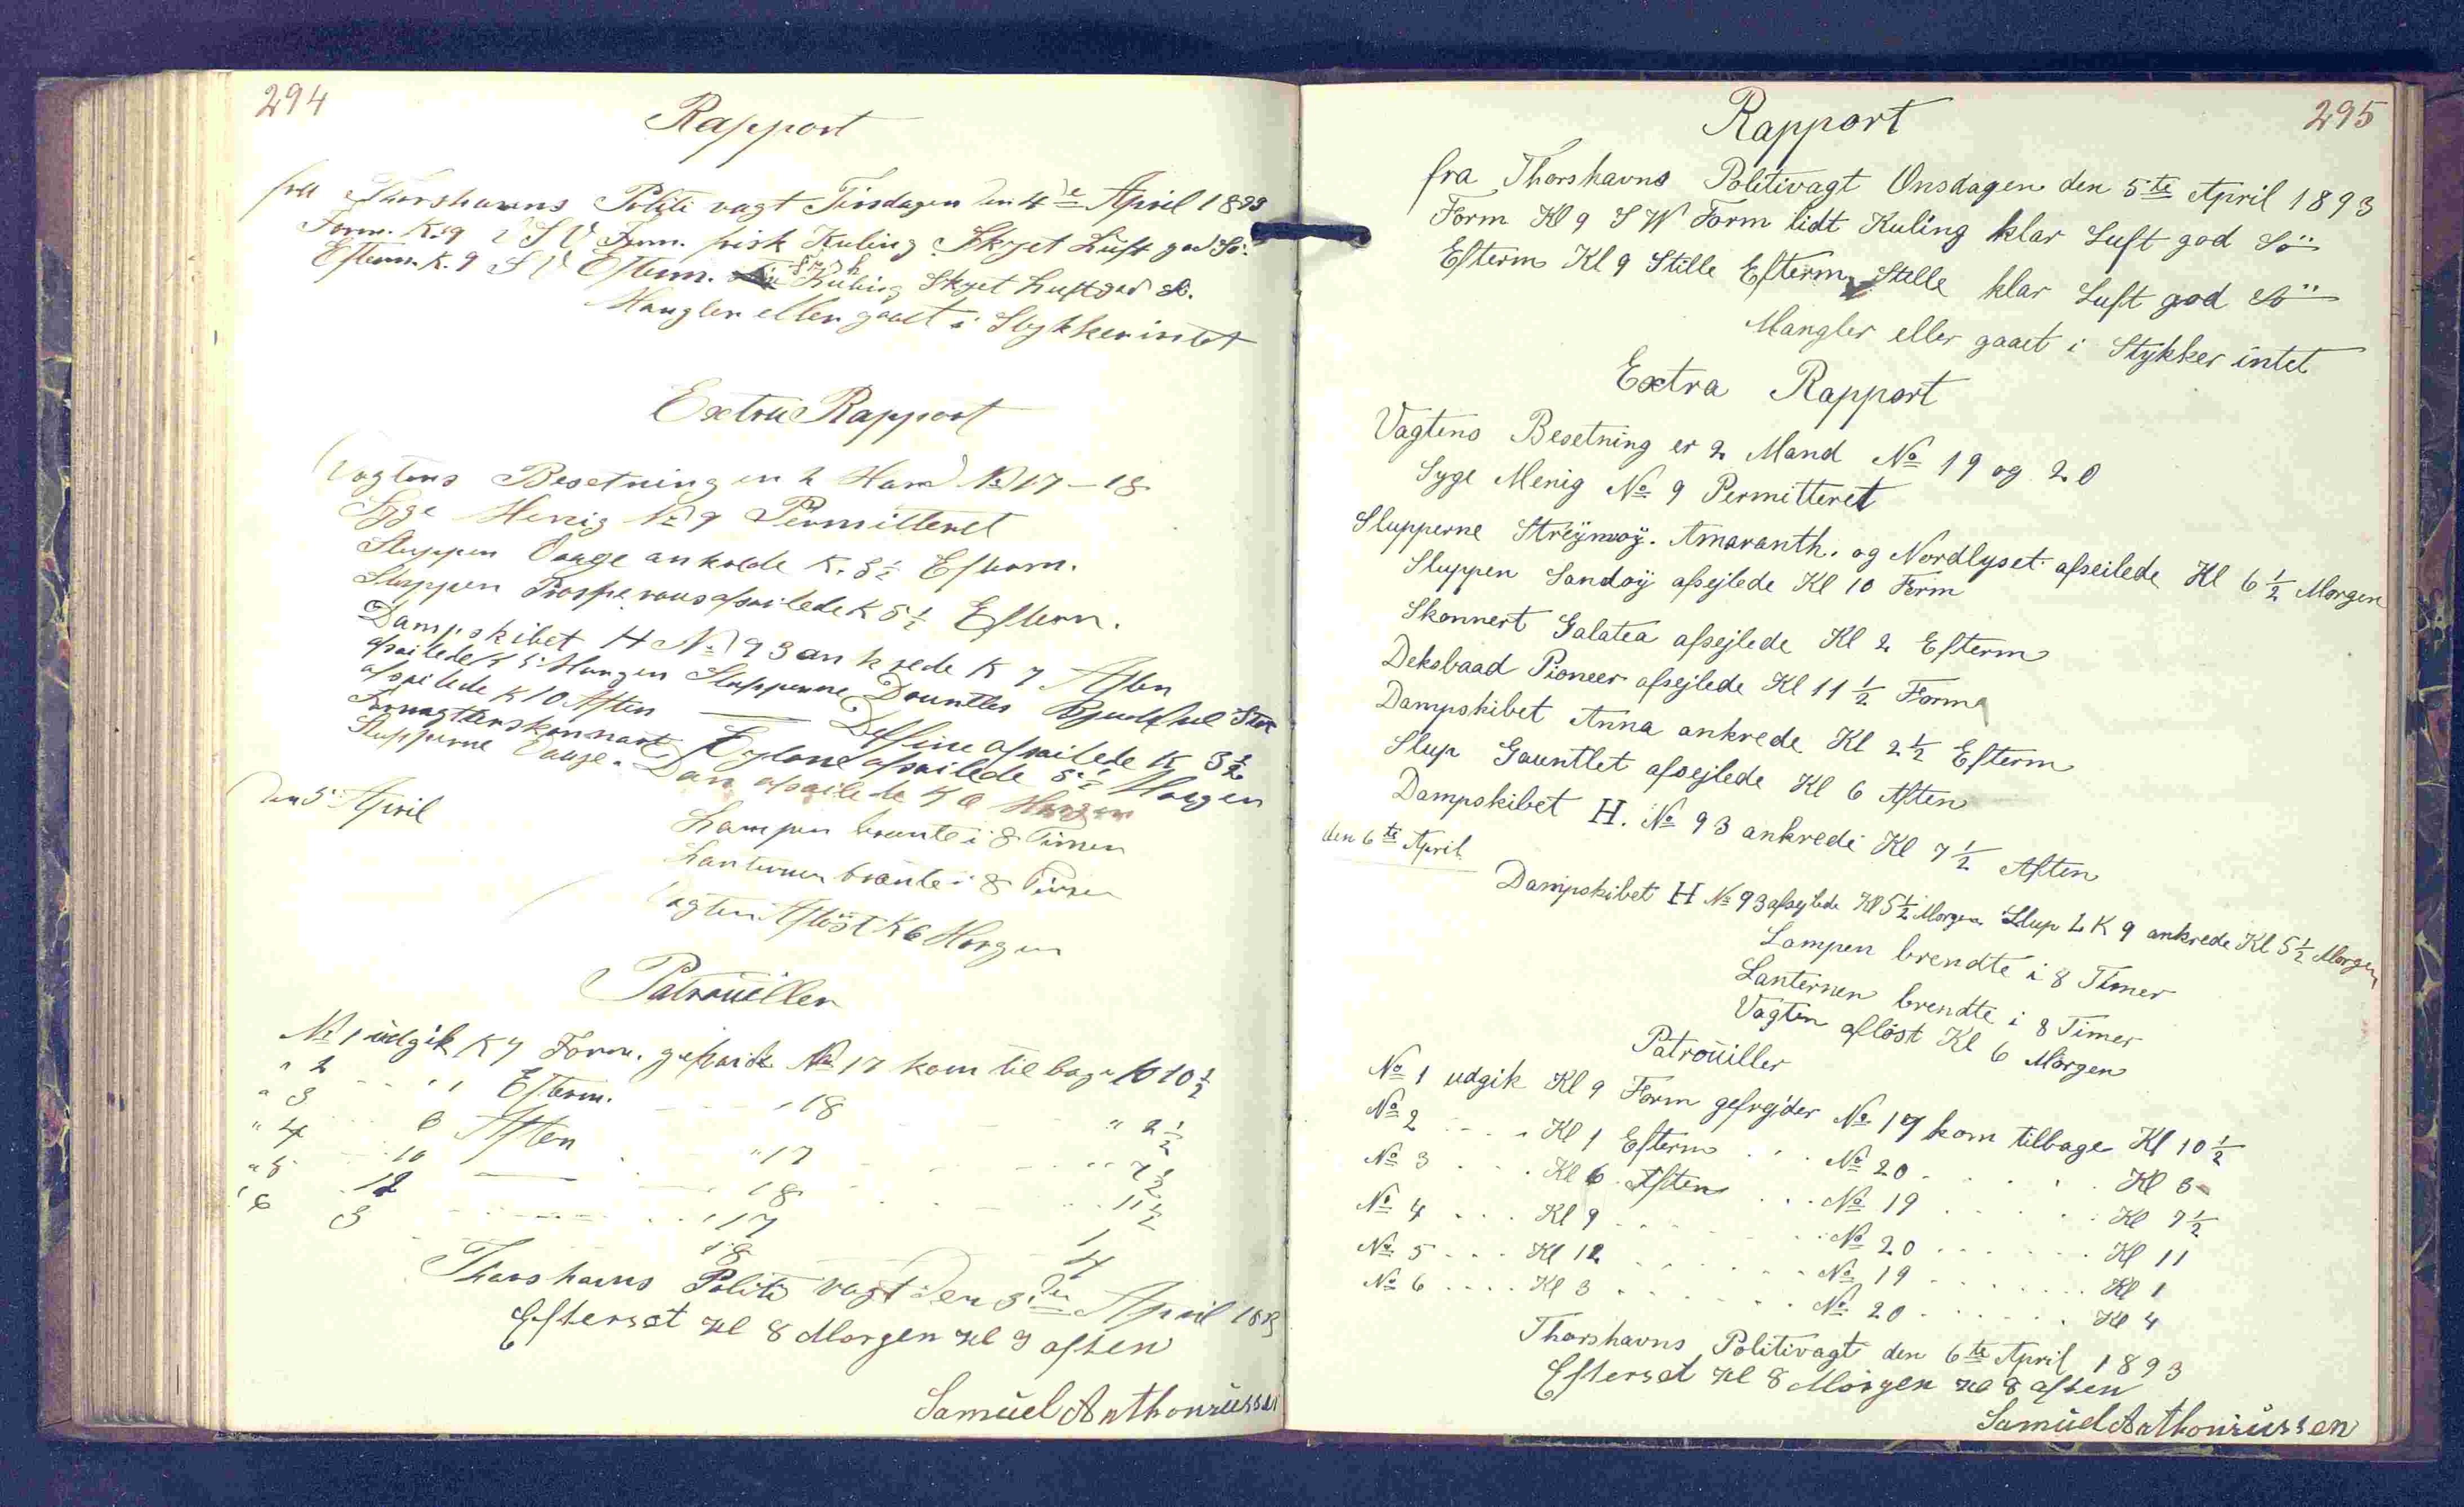 294
Rapport
fra Thorshavns Politi vagt Tirsdagen den 4de April 1893
Form. K. 9 S V Form. frisk Kuling Skyet Luft god Sö.
Efterm. K. 9 S V Efterm. frisk Kuling Skyet Luft god Sö.
Mangler eller gaaet i Stykker intet
Extra Rapport
Vagtens Besetning er 2 Man No 17 – 18
Syge Menig No 9 Permitteret
Sluppen Vaage ankrede K. 3 1/2 Efterm.
Sluppen Prosperous afseilede K 5 1/2 Efterm.
Dampskibet H No 93 ankrede K 7 Aften
afseilede K 5 Morgen Slupperne Dauntles
afseilede K 10 Aften Delfine afseilede K 3 1/2
afseilede 5 1/2 Morgen
Slupperne Vaage. Dan afseilede K 6 Morgen
Den 5 April
Lampen brante i 8 Timer
Lanternen brante i 8 Timer
Vagten Aflöst K 6 Morgen
Patrouiller
No 1 udgik K 9 Form. gefreider No 17 kom tilbage K 10 1/2
" 2 " 1 Efterm. 18 " 2 1/2
" 3 6 Aften " 17 " 7 1/2
" 4 10 18 11 1/2
" 5 12 " 17 1
" 6 3 18 4
Thorshavns Politi vagt den 5te April 1893
Efterset Kl 8 Morgen Kl 9 aften
Samuel Anthoniussen
295
Rapport
fra Thorshavns Politivagt Onsdagen den 5te April 1893
Form Kl 9 S W Form lidt Kuling klar Luft god Sö
Efterm Kl 9 Stille Efterm Stille klar Luft god Sö
Mangler eller gaaet i Stykker intet
Extra Rapport
Vagtens Besetning er 2 Mand No 19 og 20
Syge Menig No 9 Permitteret
Slupperne Streÿmoÿ. Amaranth. og Nordlyset afseilede Kl 6 1/2 Morgen
Sluppen Sandoÿ afsejlede Kl 10 Form
Skonnert Galatea afsejlede Kl 2 Efterm
Deksbaad Pioneer afsejlede Kl 11 1/2 Form
Dampskibet Anna ankrede Kl 2 1/2 Efterm
Slup Gauntlet afsejlede Kl 6 Aften
Dampskibet H. No 93 ankrede Kl 7 1/2 Aften
den 6te April
Dampskibet H No 93 afsejlede Kl 5 1/2 Morgen Slup L K 9 ankrede Kl 5 1/2 Morgen
Lampen brendte i 8 Timer
Lanternen brendte i 8 Timer
Vagten aflöst Kl 6 Morgen
Patrouiller
No 1 udgik Kl 9 Form gefrejder No 19 kom tilbage Kl 10 1/2
No 2 . . . . Kl 1 Efterm . . . No 20 . . . . . Kl 3
No 3 . . . . Kl 6 Aften . . . No 19 . . . . . Kl 7 1/2
No 4 . . . . Kl 9 . . . . . . No 20 . . . . . Kl 11
No 5 . . . . Kl 12 . . . . . . No 19 . . . . . Kl 1
No 6 . . . . Kl 3 . . . . . . No 20 . . . . . Kl 4
Thorshavns Politivagt den 6te April 1893
Efterset Kl 8 Morgen Kl 8 aften
Samuel Anthoniussen